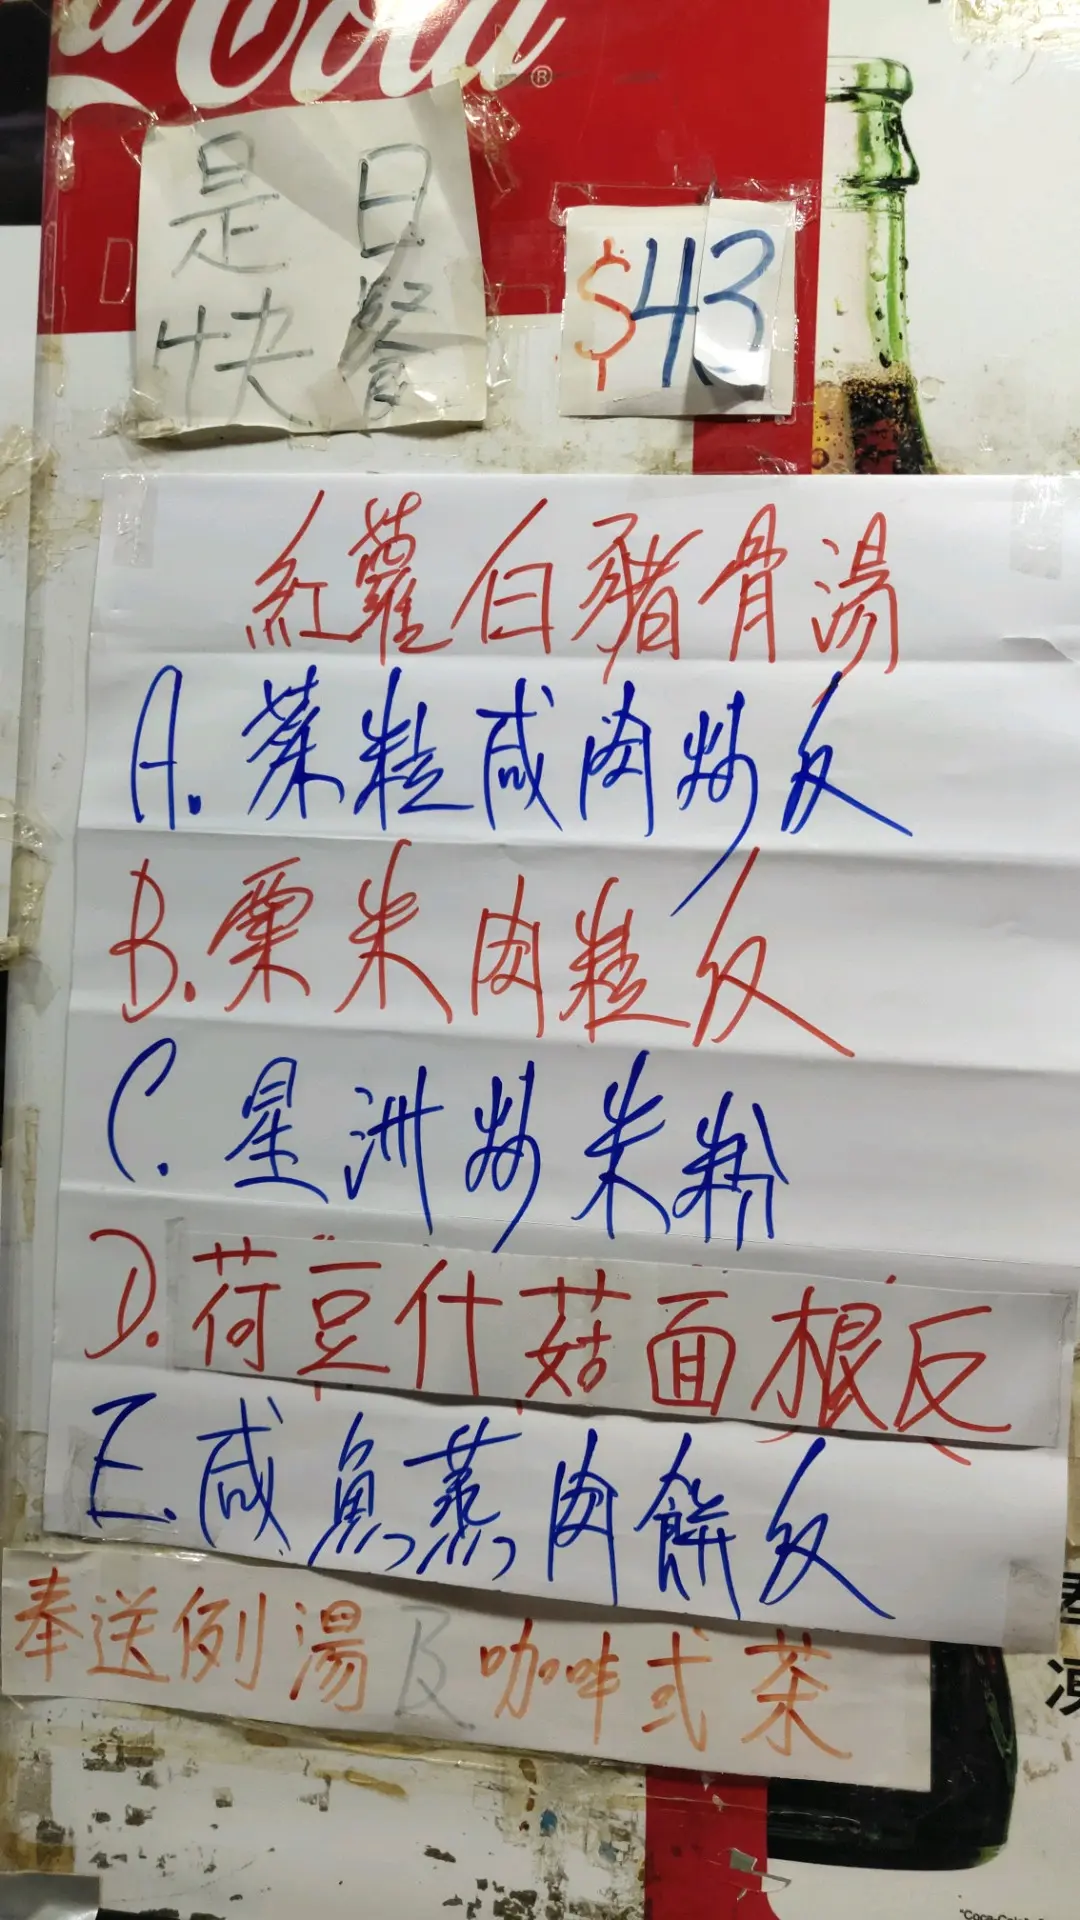 Coca-Cola®
是日
快餐
$43
紅蘿白豬骨湯
A. 菜粒咸肉炒反
B. 粟米肉粒反
C. 星洲炒米粉
D. 荷豆什菇面根反
E. 咸魚蒸肉餅反
奉送例湯及咖啡式茶